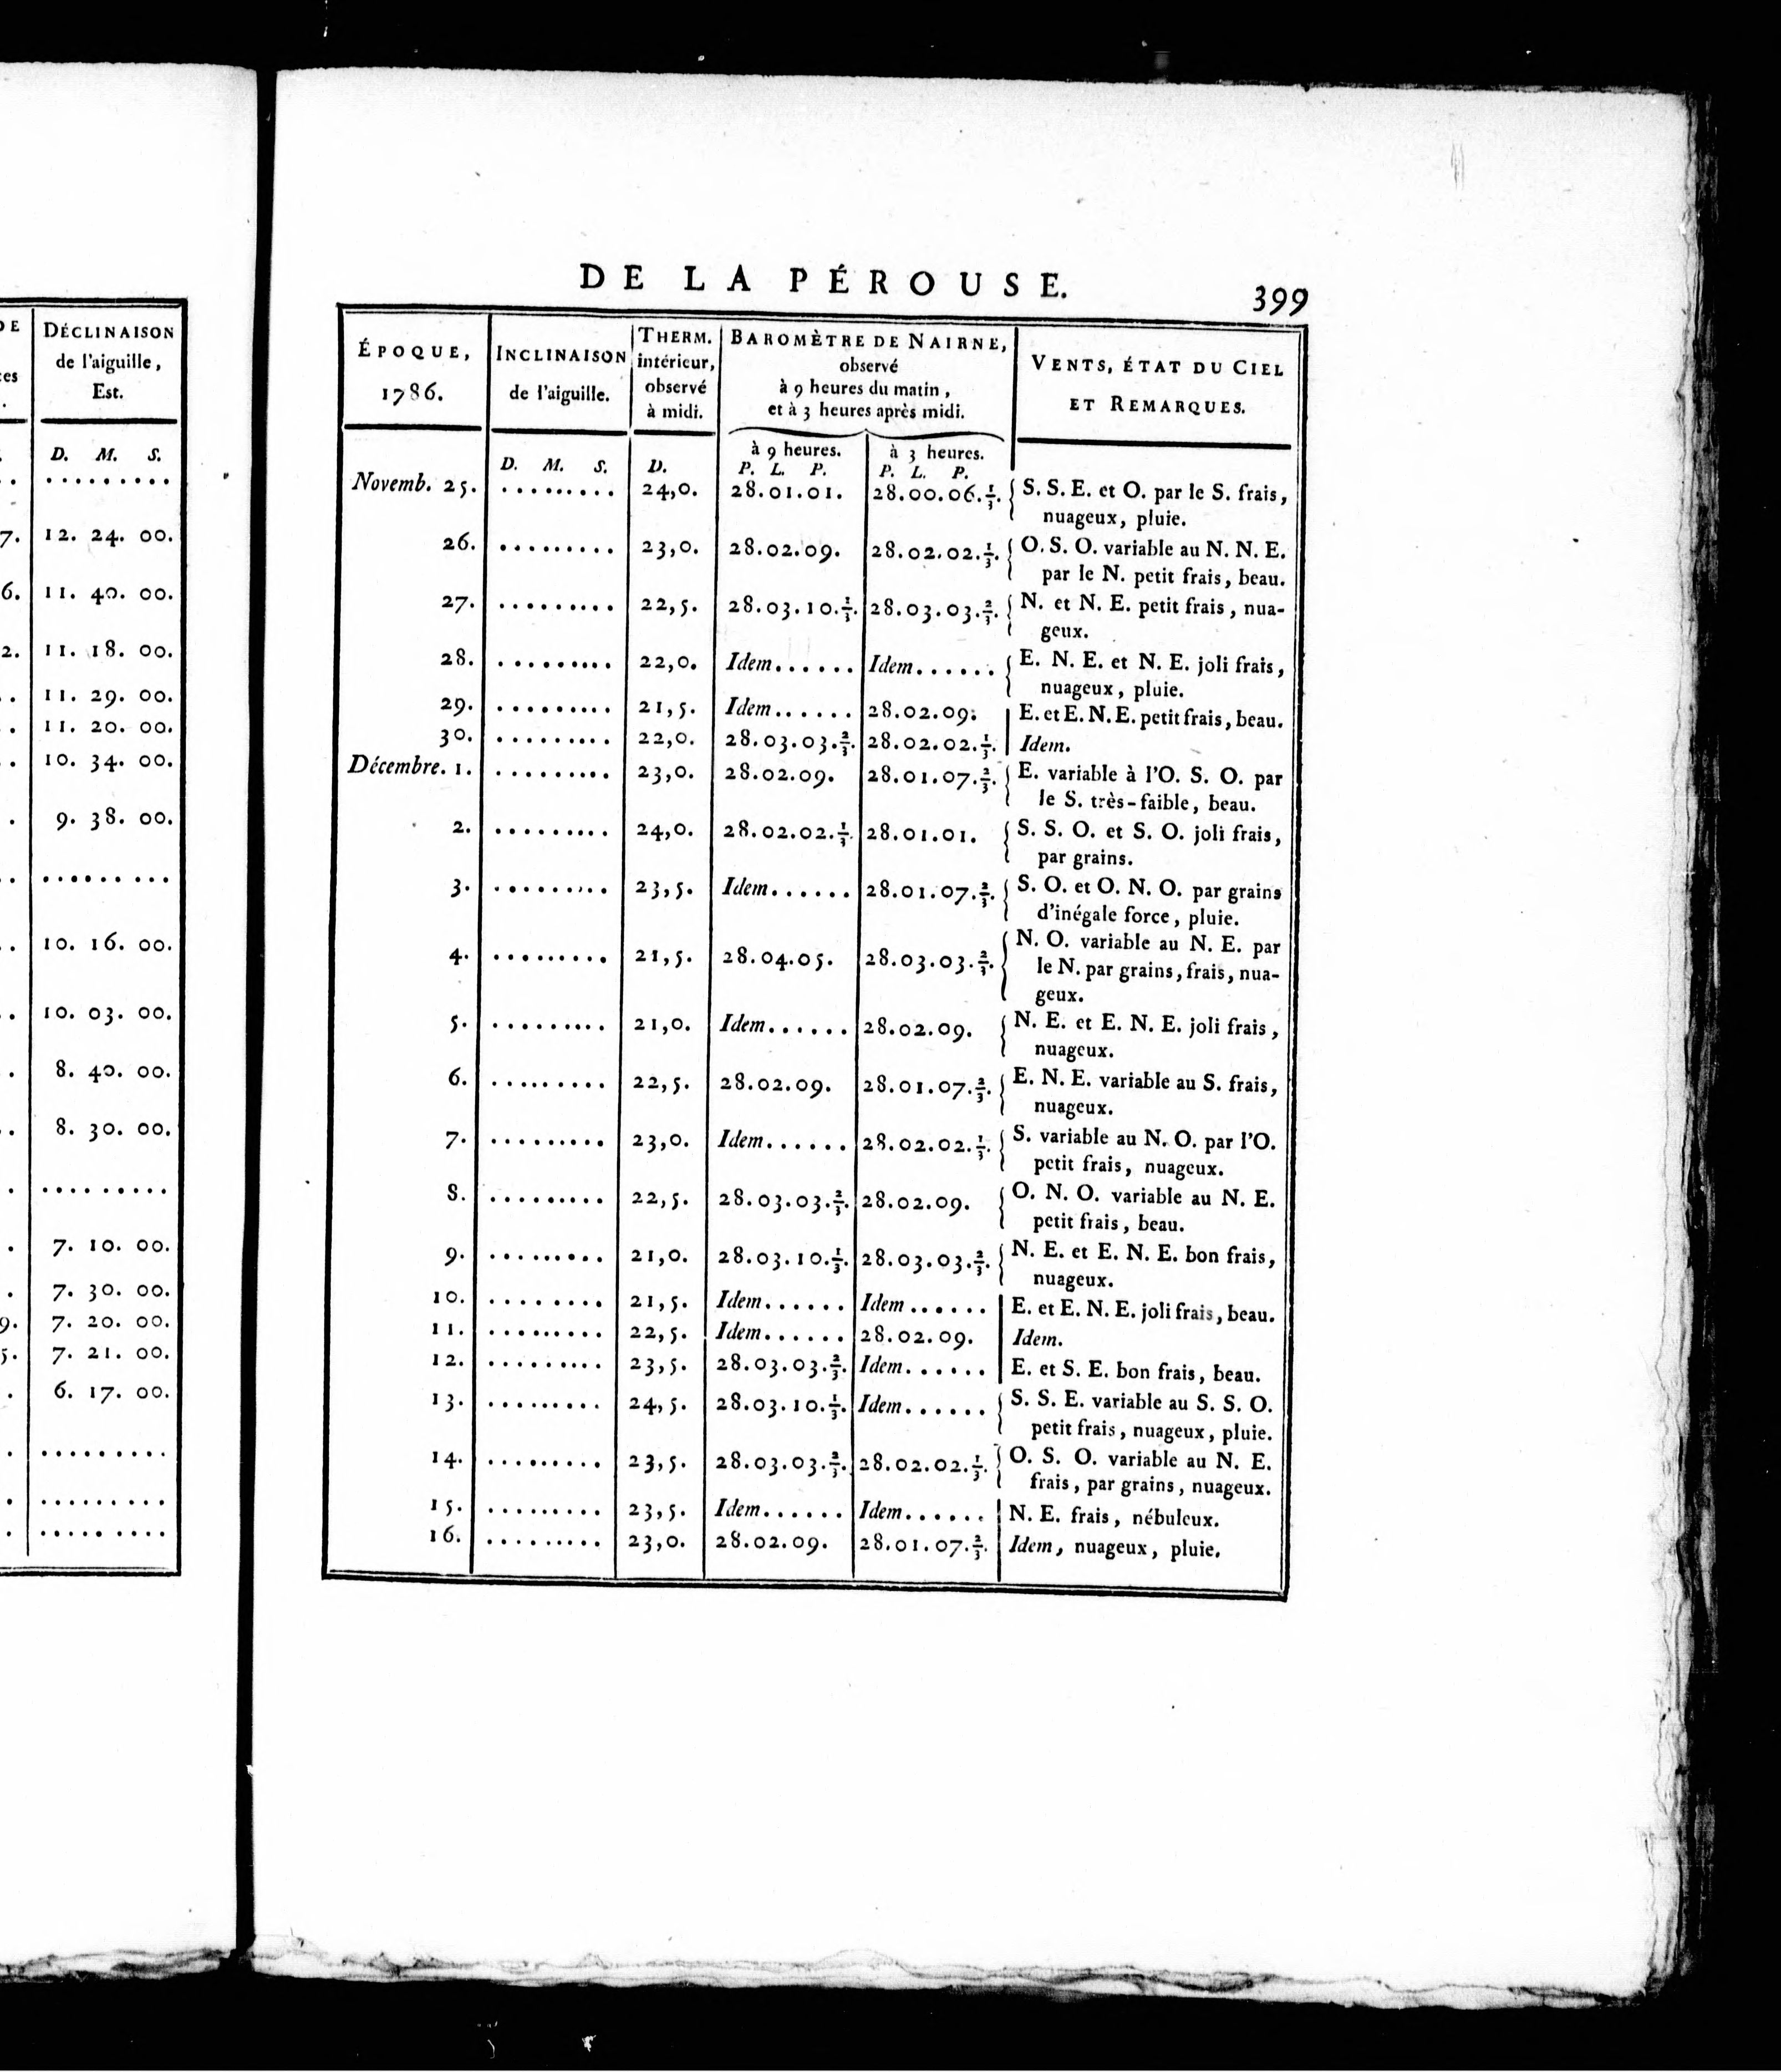 DE
ces
DÉCLINAISON
de l'aiguille,
Est.
D. M. S.
. .........
7. 12. 24. 00.
6. 11. 40. 00.
2. 11. 18. 00.
. 11. 29. 00.
. 11. 20. 00.
. 10. 34. 00.
. 9. 38. 00.
. .........
. 10. 16. 00.
. 10. 03. 00.
. 8. 40. 00.
. 8. 30. 00.
. .........
. 7. 10. 00.
. 7. 30. 00.
9. 7. 20. 00.
5. 7. 21. 00.
. 6. 17. 00.
. .........
. .........
. .........
DE LA PÉROUSE. 399
ÉPOQUE,
1786.
INCLINAISON
de l'aiguille.
THERM.
intérieur,
observé
à midi.
BAROMÈTRE DE NAIRNE,
observé
à 9 heures du matin,
et à 3 heures après midi.
VENTS, ÉTAT DU CIEL
ET REMARQUES.
à 9 heures. à 3 heures.
D. M. S. D. P. L. P. P. L. P.
Novemb. 25. ......... 24,0. 28.01.01. 28.00.06.⅓. S. S. E. et O. par le S. frais,
nuageux, pluie.
26. ......... 23,0. 28.02.09. 28.02.02.⅓. O. S. O. variable au N. N. E.
par le N. petit frais, beau.
27. ......... 22,5. 28.03.10.⅓. 28.03.03.⅔. N. et N. E. petit frais, nua-
geux.
28. ......... 22,0. Idem...... Idem...... E. N. E. et N. E. joli frais,
nuageux, pluie.
29. ......... 21,5. Idem...... 28.02.09. E. et E. N. E. petit frais, beau.
30. ......... 22,0. 28.03.03.⅔. 28.02.02.⅓. Idem.
Décembre. 1. ......... 23,0. 28.02.09. 28.01.07.⅔. E. variable à l'O. S. O. par
le S. très-faible, beau.
2. ......... 24,0. 28.02.02.⅓. 28.01.01. S. S. O. et S. O. joli frais,
par grains.
3. ......... 23,5. Idem...... 28.01.07.⅔. S. O. et O. N. O. par grains
d'inégale force, pluie.
4. ......... 21,5. 28.04.05. 28.03.03.⅔. N. O. variable au N. E. par
le N. par grains, frais, nua-
geux.
5. ......... 21,0. Idem...... 28.02.09. N. E. et E. N. E. joli frais,
nuageux.
6. ......... 22,5. 28.02.09. 28.01.07.⅔. E. N. E. variable au S. frais,
nuageux.
7. ......... 23,0. Idem...... 28.02.02.⅓. S. variable au N. O. par l'O.
petit frais, nuageux.
8. ......... 22,5. 28.03.03.⅔. 28.02.09. O. N. O. variable au N. E.
petit frais, beau.
9. ......... 21,0. 28.03.10.⅓. 28.03.03.⅔. N. E. et E. N. E. bon frais,
nuageux.
10. ......... 21,5. Idem...... Idem...... E. et E. N. E. joli frais, beau.
11. ......... 22,5. Idem...... 28.02.09. Idem.
12. ......... 23,5. 28.03.03.⅔. Idem...... E. et S. E. bon frais, beau.
13. ......... 24,5. 28.03.10.⅓. Idem...... S. S. E. variable au S. S. O.
petit frais, nuageux, pluie.
14. ......... 23,5. 28.03.03.⅔. 28.02.02.⅓. O. S. O. variable au N. E.
frais, par grains, nuageux.
15. ......... 23,5. Idem...... Idem...... N. E. frais, nébuleux.
16. ......... 23,0. 28.02.09. 28.01.07.⅔. Idem, nuageux, pluie.